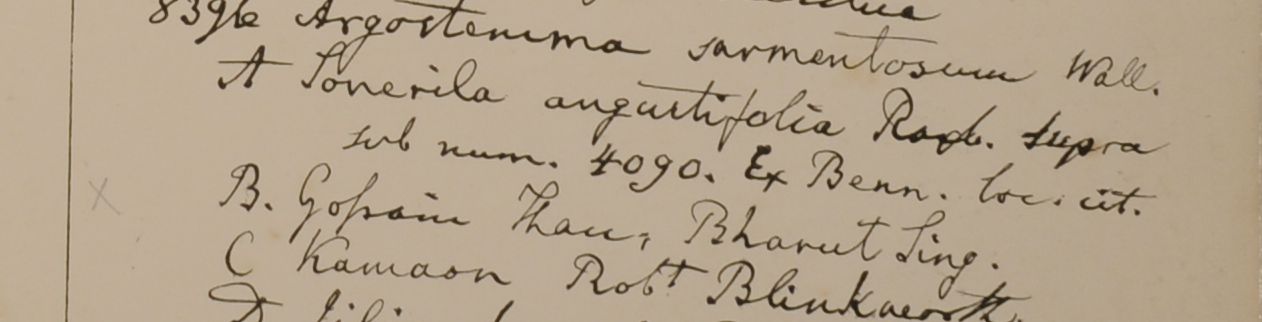 8396 Argostemma sarmentosum Wall.
A Sonerila angustifolia Roxb. supra
sub num. 4090. Ex Benn. loc. cit.
B. Gossain Than, Bharut Sing.
C Kamaon Robt Blinkworth.
D